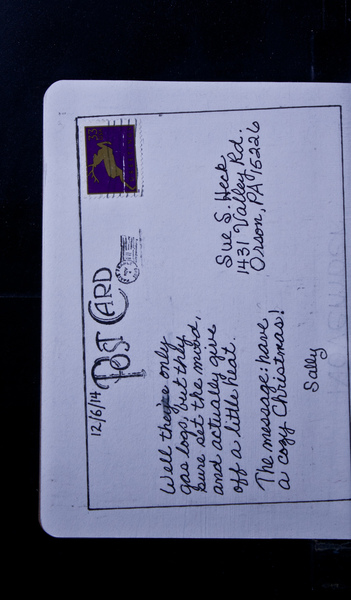 12/6/14
POST CARD
Well they're only
gas logs, but they
sure set the mood,
and actually give
off a little heat.
The message: have
a cozy Christmas!
Sally
Sue S. Heck
1431 Valley Rd.
Orson, PA 15226